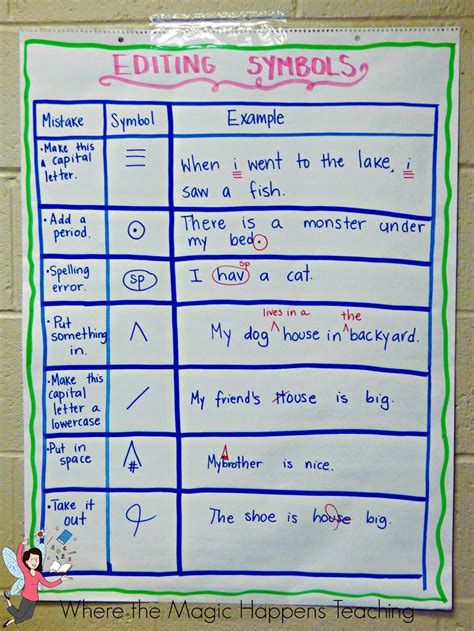 EDITING SYMBOLS
Mistake Symbol Example
•Make this
a capital
letter.
When i went to the lake, i
saw a fish.
•Add a
period.
There is a monster under
my bed.
•Spelling
error.
sp
sp
I hav a cat.
•Put
something
in.
lives in a the
My dog ^ house in ^ backyard.
•Make this
capital
letter a
lowercase
/
My friend's House is big.
•Put in
space
#
Mybrother is nice.
•Take it
out
The shoe is house big.
Where the Magic Happens Teaching